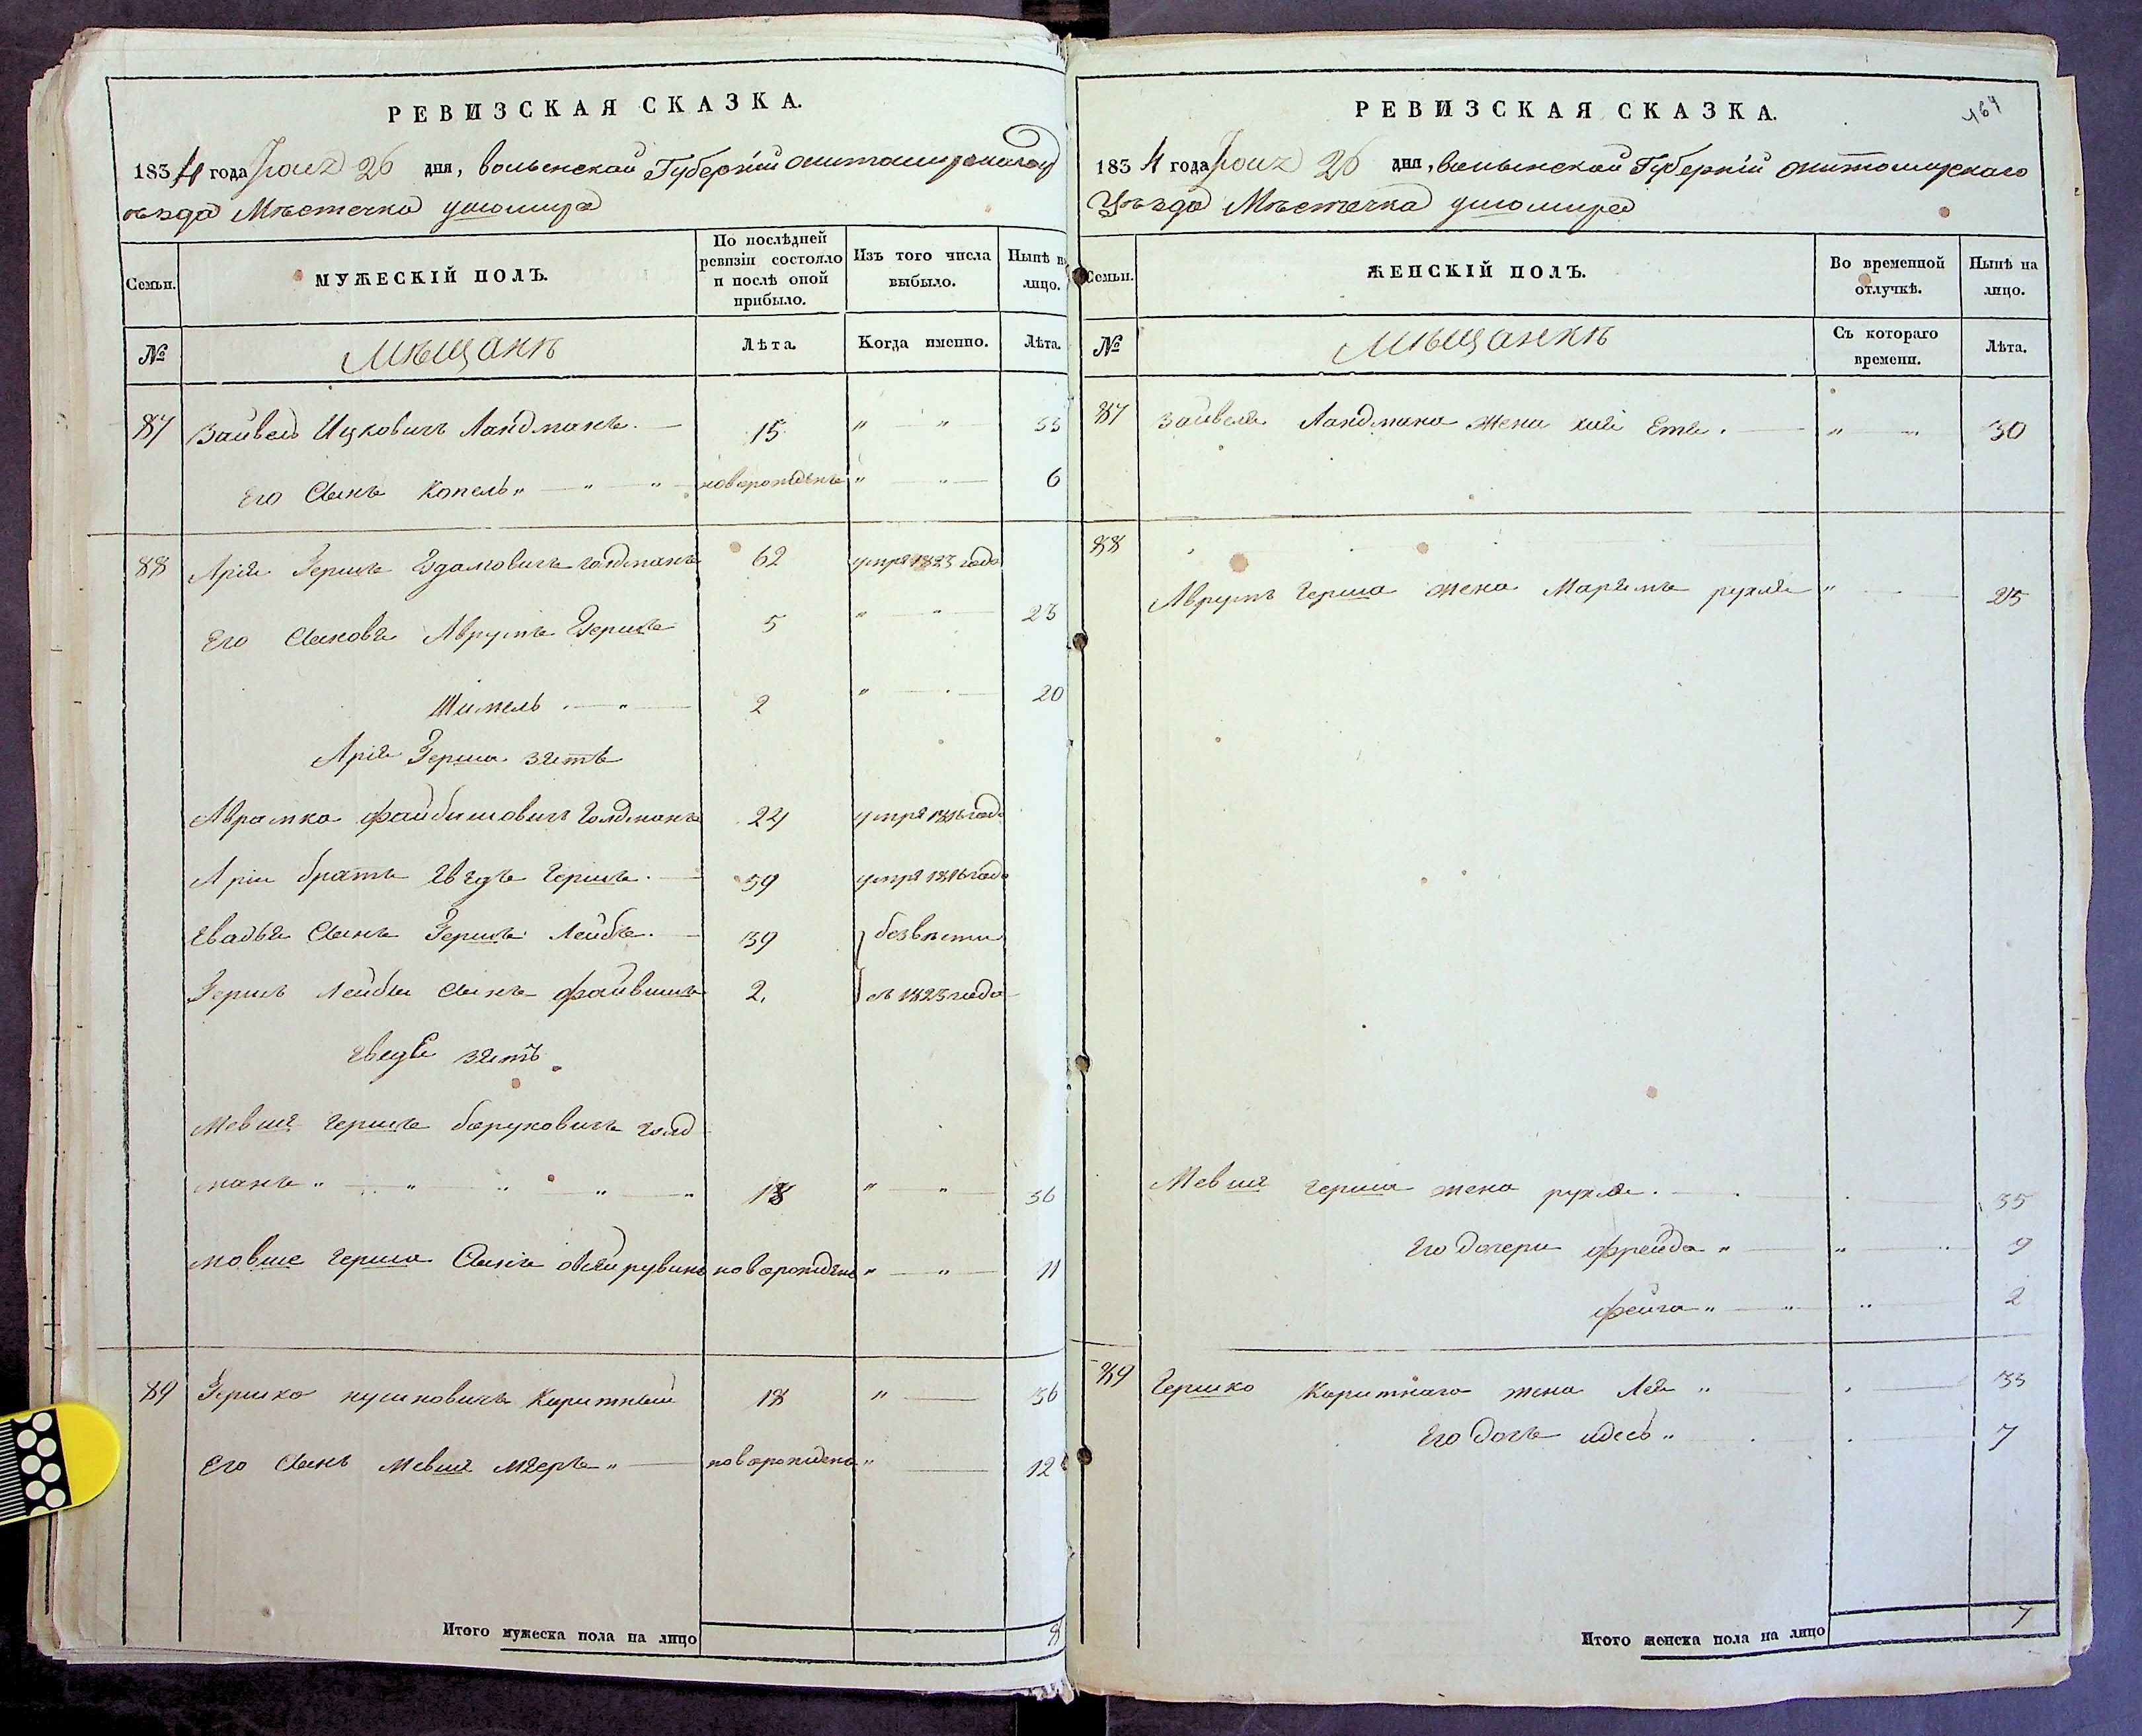 РЕВИЗСКАЯ СКАЗКА.
1834 года 26 дня, волынской Губернii житомирскаго у
ѣзда Мѣстечка ушомира
Семьи.
МУЖЕСКІЙ ПОЛЪ.
По послѣдней ревизіи состояло и послѣ оной прибыло.
Изъ того числа выбыло.
Нынѣ на лицо.
№
Мѣщанѣ
Лѣта.
Когда именно.
Лѣта.
87 Зайвель Ицковичъ Ландманъ. 15 " " 33
Его Сынъ Копель " " " новорожденъ " " 6
88 Арія Герш 62 умре 1823 года
Его Сыновя Аврумъ Гершъ 5 " " 23
Шимель " 2 " 20
Арія Герша зятъ
Аврамко файбишовичъ Голдманъ 24 умре года
Аріи братъ Гершъ. 59 умре 1816 года
Сынъ Гершъ Лейбъ. 39 безвѣсти
Гершъ Лейбы Сынъ файвишъ 2. съ 1823 года
зятъ
Мовша Гершъ боруховичъ голд
манъ " " " " " 18 " " 36
мовше герша Сынъ новорожденъ " " 11
89 Гершко нусиновичъ Коритный 18 " 36
Его Сынъ Мовша Мееръ " новорожденъ " 12
Итого мужеска пола на лицо 8
164
РЕВИЗСКАЯ СКАЗКА.
1834 года 26 дня, волынской Губернiи житомирскаго
Уѣзда Мѣстечка ушомира
Семьи.
ЖЕНСКІЙ ПОЛЪ.
Во временной отлучкѣ.
Нынѣ на лицо.
№
Мѣщанкѣ
Съ котораго времени.
Лѣта.
87 Зайвеля Ландмана жена хая Етя. " 30
88
Аврумъ Герша жена Маріямъ рухля " 25
Мовша герша жена рухля. 35
Его дочери фрейда " " 9
фейга " " 2
89 Гершко Коритнаго жена Лея " 33
Его дочъ идесъ " 7
Итого женска пола на лицо 7